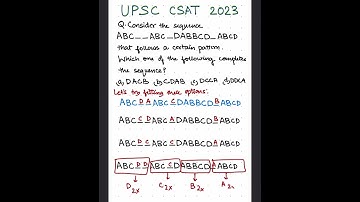 UPSC CSAT 2023
Q. Consider the sequence
ABC _ _ ABC _ DABBCD _ ABCD
that follows a certain pattern.
Which one of the following completes
the sequence?
a, DACB b, CDAB c, DCCA d, DDCA
Let's try fitting these options:
ABC D A ABC C DABBCD B ABCD
ABC C D ABC A DABBCD B ABCD
ABC D C ABC C DABBCD A ABCD
ABC D D ABC C D ABBCD A ABCD
D2x C2x B2x A2x